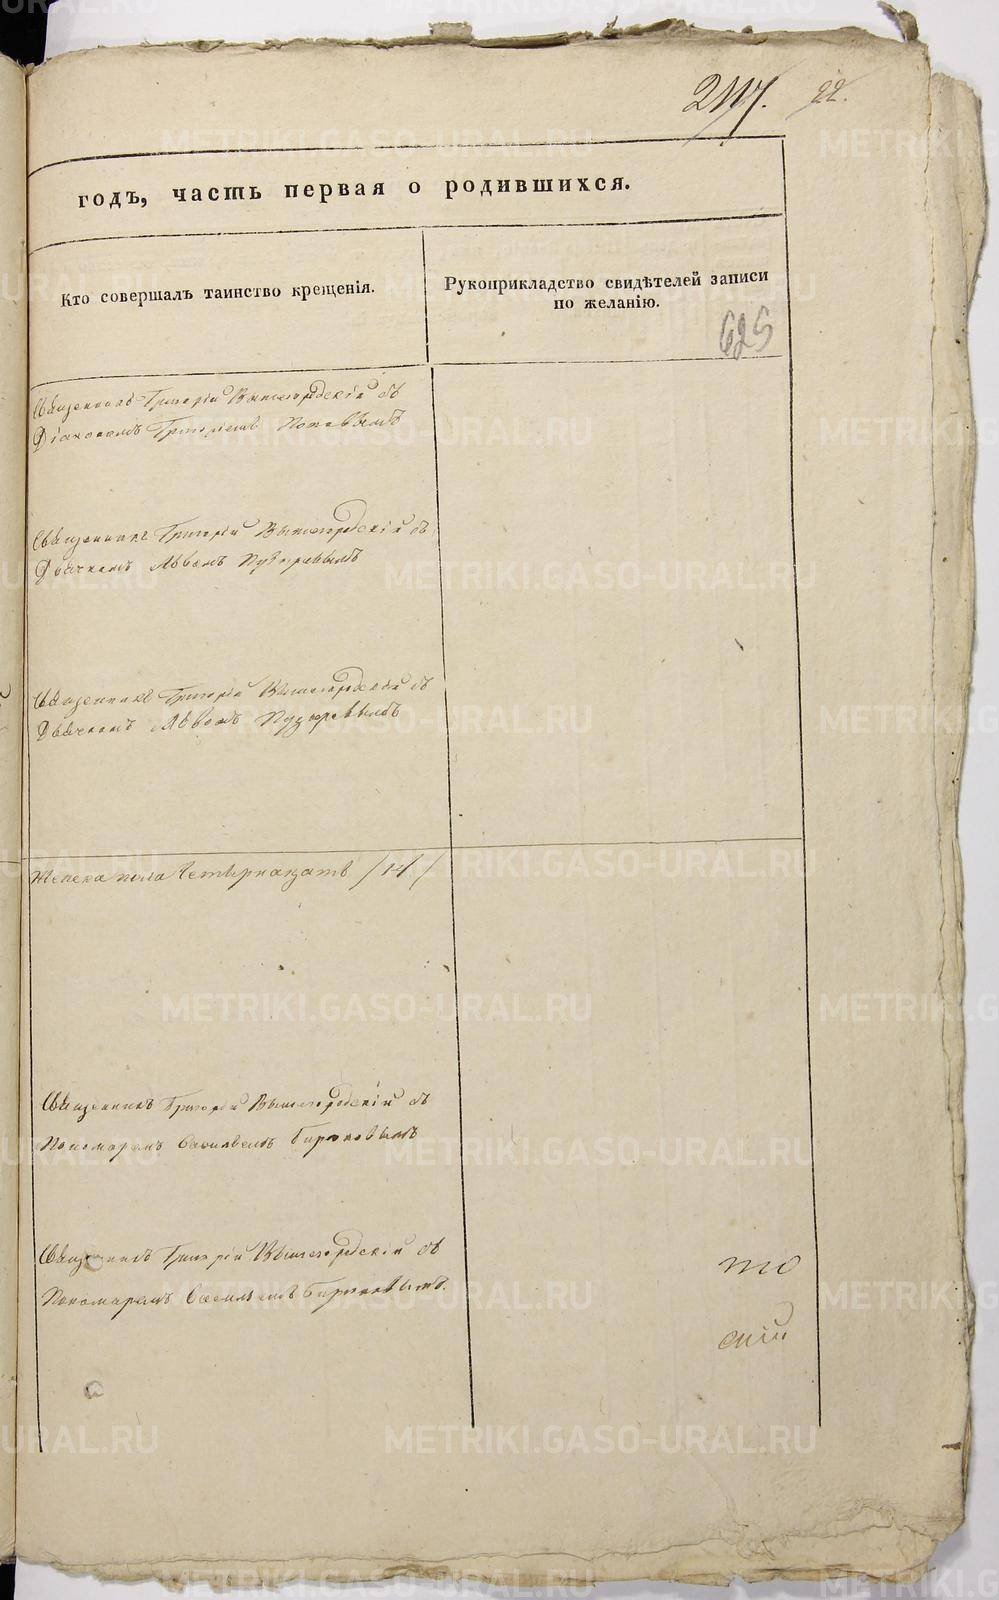 22.
годъ, часть первая о родившихся.
Кто совершалъ таинство крещенія.
Рукоприкладство свидѣтелей записи
по желанію.
625
Священникъ Григорій Вышегородскій съ
Діакономъ Григоріемъ Поповымъ
Священникъ Григорій Вышегородскій съ
Дьячкомъ Львомъ
Священникъ Григорій Вышегородскій съ
Дьячкомъ Львомъ
Женска пола четырнадцать /14/
Священникъ Григорій Вышегородскій съ
Пономаремъ Василіемъ Бирюковымъ
Священникъ Григорій Вышегородскій съ
Пономаремъ Василіемъ Бирюковымъ.
то
METRIKI.GASO-URAL.RU